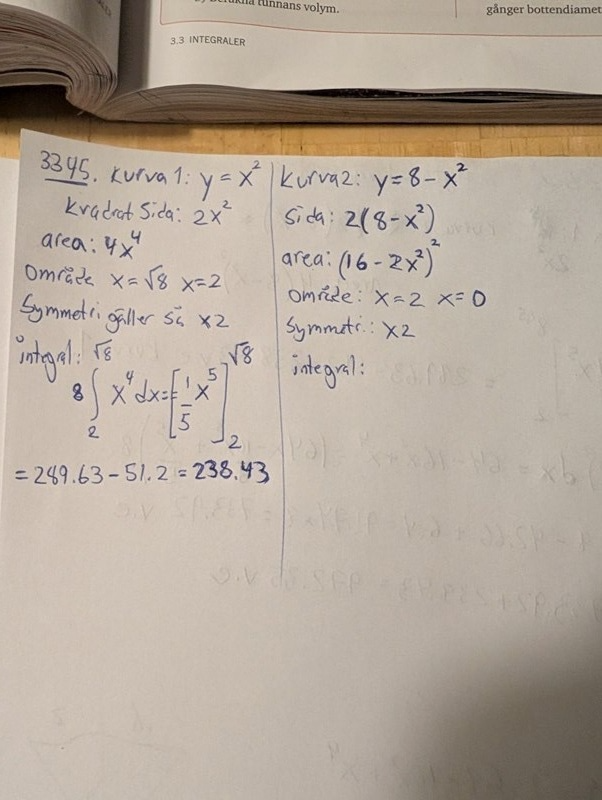 tunnans volym.
gånger bottendiamet
3.3 INTEGRALER
3345. Kurva 1: y = x²
Kvadrat Sida: 2x²
area: 4x⁴
Område x = √8 x = 2
Symmetri gäller så x2
integral:
8 ∫₂^√8 x⁴ dx = [1/5 x⁵]₂^√8
= 289.63 − 51.2 = 238.43
Kurva 2: y = 8 − x²
Sida: 2(8 − x²)
area: (16 − 2x²)²
Område: x = 2 x = 0
Symmetri: x2
integral: